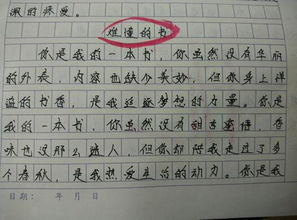 的疼爱。
难懂的书
你是我的一本书，你虽然没有华丽
的外表，内容也缺少美妙，但你身上洋
溢的书香，是我延续梦想的力量。你是
我的一本书，你虽然没有甜言蜜语，香
味也没那么迷人，但你却陪我走过了多
个春秋，是我热爱生活的动力。你是我
日期： 年 月 日